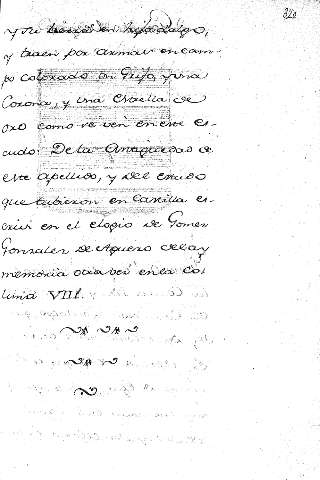 y su
y traen por armas en cam
po colorado un Grifo, y una
Corona, y una Estrella de
oro como se ven en este es
cudo: De la Antiguedad de
este apellido, y del escudo
que tubieron en Castilla es
crivi en el elogio de Gomez
Gonzalez de Aguero de la y
memoria otra vez en la Co
luna VIII.